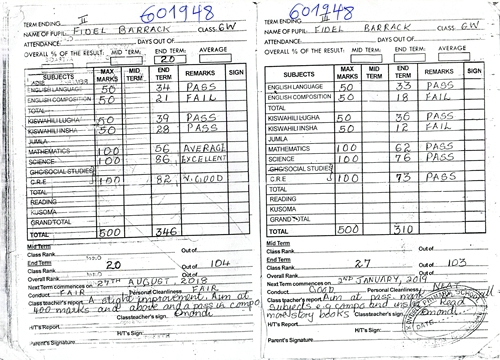 601948
TERM ENDING II
NAME OF PUPIL: FIDEL BARRACK CLASS: 6W
ATTENDANCE: DAYS OUT OF
OVERALL % OF THE RESULT: MID TERM: END TERM: AVERAGE
20
SUBJECTS MAX MARKS MID TERM END TERM REMARKS SIGN
ENGLISH LANGUAGE 50 34 PASS
ENGLISH COMPOSITION 50 21 FAIL
TOTAL
KISWAHILI LUGHA 50 39 PASS
KISWAHILI INSHA 50 28 PASS
JUMLA
MATHEMATICS 100 56 AVERAGE
SCIENCE 100 86 EXCELLENT
GHC/SOCIAL STUDIES
C.R.E 100 82 V. GOOD
TOTAL
READING
KUSOMA
GRAND TOTAL
TOTAL 500 346
Mid Term
Class Rank Out of
End Term
Class Rank 20 Out of 104
Overall Rank Out of
Next Term commences on 27TH AUGUST 2018
Conduct FAIR Personal Cleanliness FAIR
Class teacher's report A slight improvement. Aim at
400 marks and above and a pass in compo
Class teacher's sign Omondi
H/T's Report
H/T's Sign:
601948
TERM ENDING III
NAME OF PUPIL: FIDEL BARRACK CLASS: 6W
ATTENDANCE: DAYS OUT OF
OVERALL % OF THE RESULT: MID TERM: END TERM: AVERAGE
SUBJECTS MAX MARKS MID TERM END TERM REMARKS SIGN
ENGLISH LANGUAGE 50 33 PASS
ENGLISH COMPOSITION 50 18 FAIL
TOTAL
KISWAHILI LUGHA 50 36 PASS
KISWAHILI INSHA 50 12 FAIL
JUMLA
MATHEMATICS 100 62 PASS
SCIENCE 100 76 PASS
GHC/SOCIAL STUDIES
C.R.E 100 73 PASS
TOTAL
READING
KUSOMA
GRAND TOTAL
TOTAL 500 310
Mid Term
Class Rank Out of
End Term
Class Rank 27 Out of 103
Overall Rank Out of
Next Term commences on 2ND JANUARY, 2019
Conduct GOOD Personal Cleanliness NEAT
Class teacher's report Aim at pass mark in
subjects e.g compo and insha. Read
more story books Omondi
Class teacher's sign
H/T's Report
H/T's Sign:
DATE